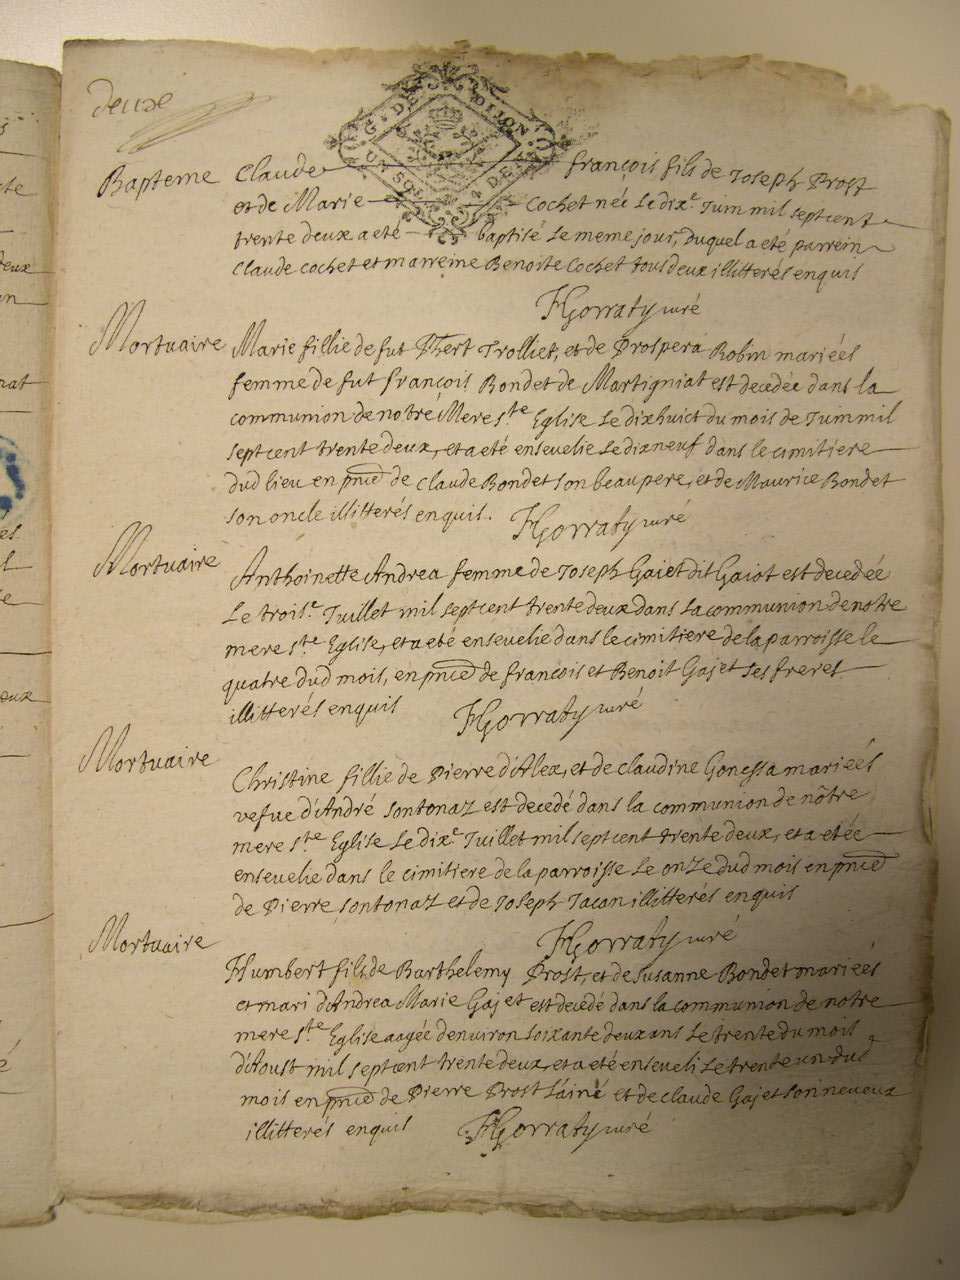 deuxe
G. DE DIJON
UN SOL 4 DE
Bapteme Claude françois fils de Joseph Prost
et de Marie Cochet née Le dix.e Juin mil septcent
trente deux a eté baptisé Le meme jour, duquel a eté parrein
Claude Cochet et marreine Benoite Cochet tous deux illitterés enquis
HGorraty curé
Mortuaire Marie fillie de fut Phert Trolliet, et de Prospera Robin mariées
femme de fut françois Bondet de Martigniat est decedée dans la
communion de nôtre Mere s.te Eglise Le dixhuict du mois de Juin mil
septcent trente deux, et a eté ensevelie Le dixneuf dans le cimitiere
dud lieu en pnce de Claude Bondet son beaupere, et de Maurice Bondet
son oncle illitterés enquis. HGorraty curé
Mortuaire Anthoinette Andrea femme de Joseph Gajet dit Gaiot est decedée
Le trois.e Juillet mil septcent trente deux dans la communion de notre
mere s.te Eglise, et a eté ensevelie dans le cimitiere de la parroisse le
quatre dud mois, en pnce de françois et Benoit Gajet ses freres
illitterés enquis HGorraty curé
Mortuaire
Christine fillie de Pierre d'Alex, et de Claudine Gonessa mariées
vefue d'André Sontonaz est decedé dans la communion de nôtre
mere s.te Eglise Le dix.e Juillet mil septcent trente deux, et a etée
ensevelie dans le cimitiere de la parroisse Le onze dud mois en pnce
de Pierre Sontonaz et de Joseph Jacan illitterés enquis
Mortuaire HGorraty curé
Humbert fils de Barthelemy Prost, et de Susanne Bondet mariées
et mari d'Andrea Marie Gajet est decedé dans la communion de notre
mere s.te Eglise aagée denviron soixante deux ans Le trente du mois
d'Aoust mil septcent trente deux, et a eté enseveli Le trente un dud
mois en pnce de Pierre Prost L'ainé et de Claude Gajet son neveux
illitterés enquis HGorraty curé